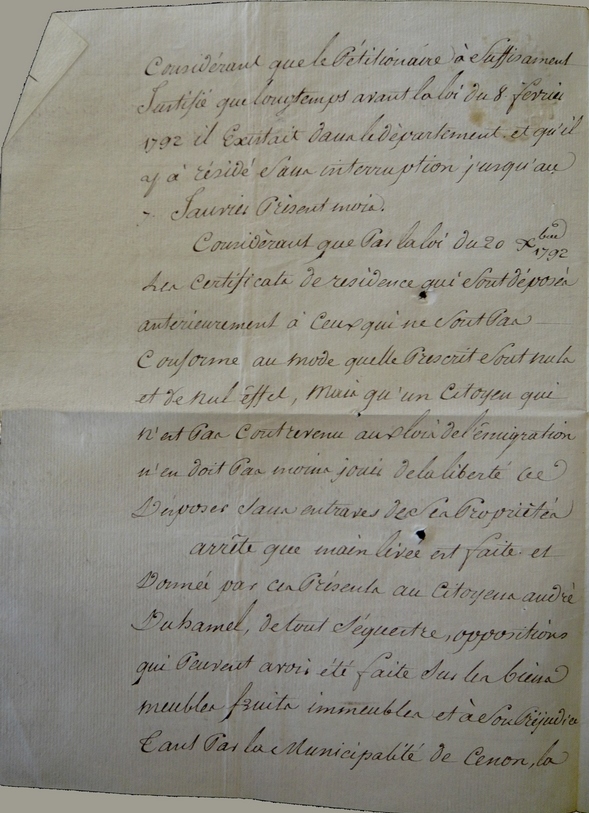 Considérant que le Pétitionaire à Suffisament
Justifié que longtemps avant la loi du 8 fevrier
1792 il Existait dans le département et qu'il
y à résidé Sans interruption jusqu'au
- Janvier Présent mois.
Considèrant que Par la loi du 20 Xbre 1792
Les Certificats de residence qui Sont déposés
antérieurement à Ceux qui ne Sont Pas
Conforme au mode quelle Prescrit Sont nuls
et de nul éffet, Mais qu'un Citoyen qui
n'est Pas Contrevenu aux lois de l'émigration
n'en doit Pas moins jouir de la liberté de
Disposer Sans entraves de Ses Propriètés
arrête que main livée est faite et
Donnée par ces Présents au Citoyens andré
Duhamel, de tout Séquestre, oppositions
qui Peuvent avoir été faite Sur les biens
meubles fruits immeubles et à Son Préjudice
Tant Par la Municipalité de Cenon, la